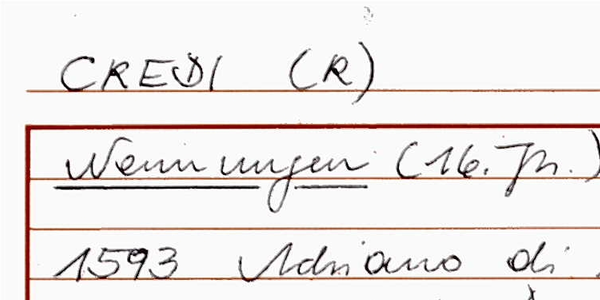 CREDI (R)
Nennungen (16. Jh.)
1593 Adriano di